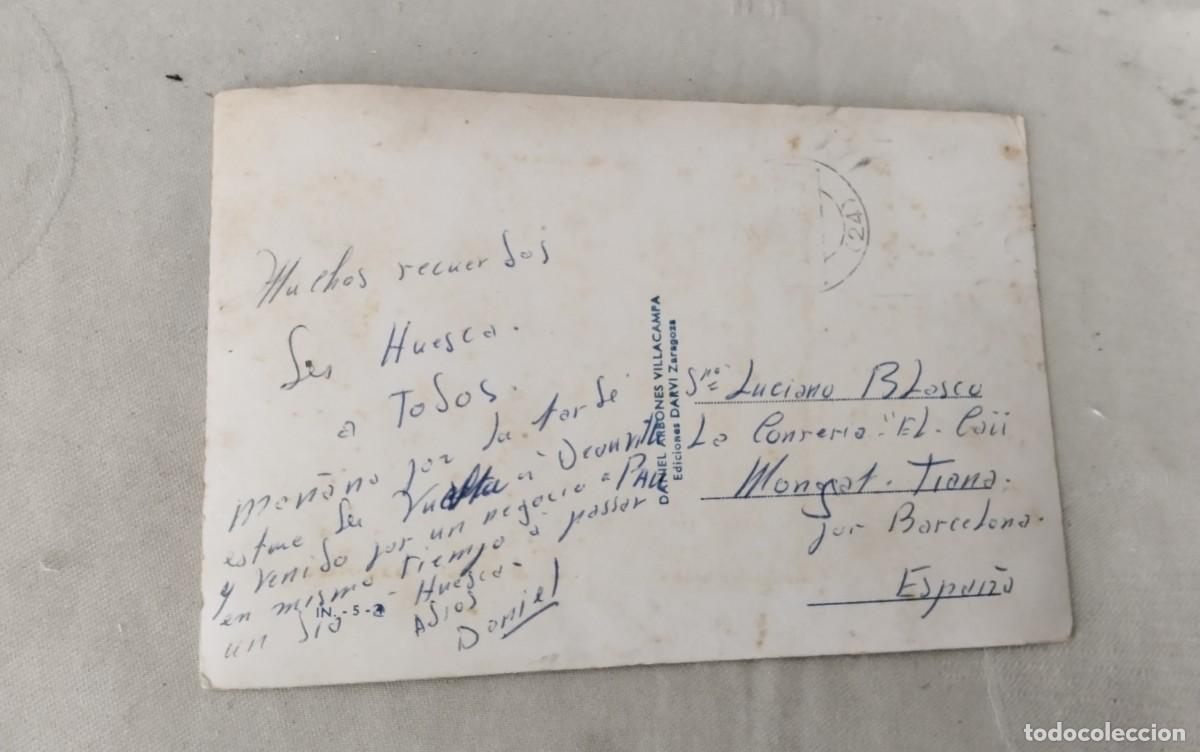 Muchos recuerdos
des Huesca.
a Todos.
mañana por la tarde
estare de Vuelta a Deauville
y venido por un negocio a PAU
en mismo tiempo a passar
un dia - Huesca -
ADios
Daniel
IN. -5-
DANIEL ARBONES VILLACAMPA
Ediciones DARVI Zaragoza
(24)
Luciano BLasco
La Conreria "EL
Mongat - Tiana.
por Barcelona.
España
todocoleccion